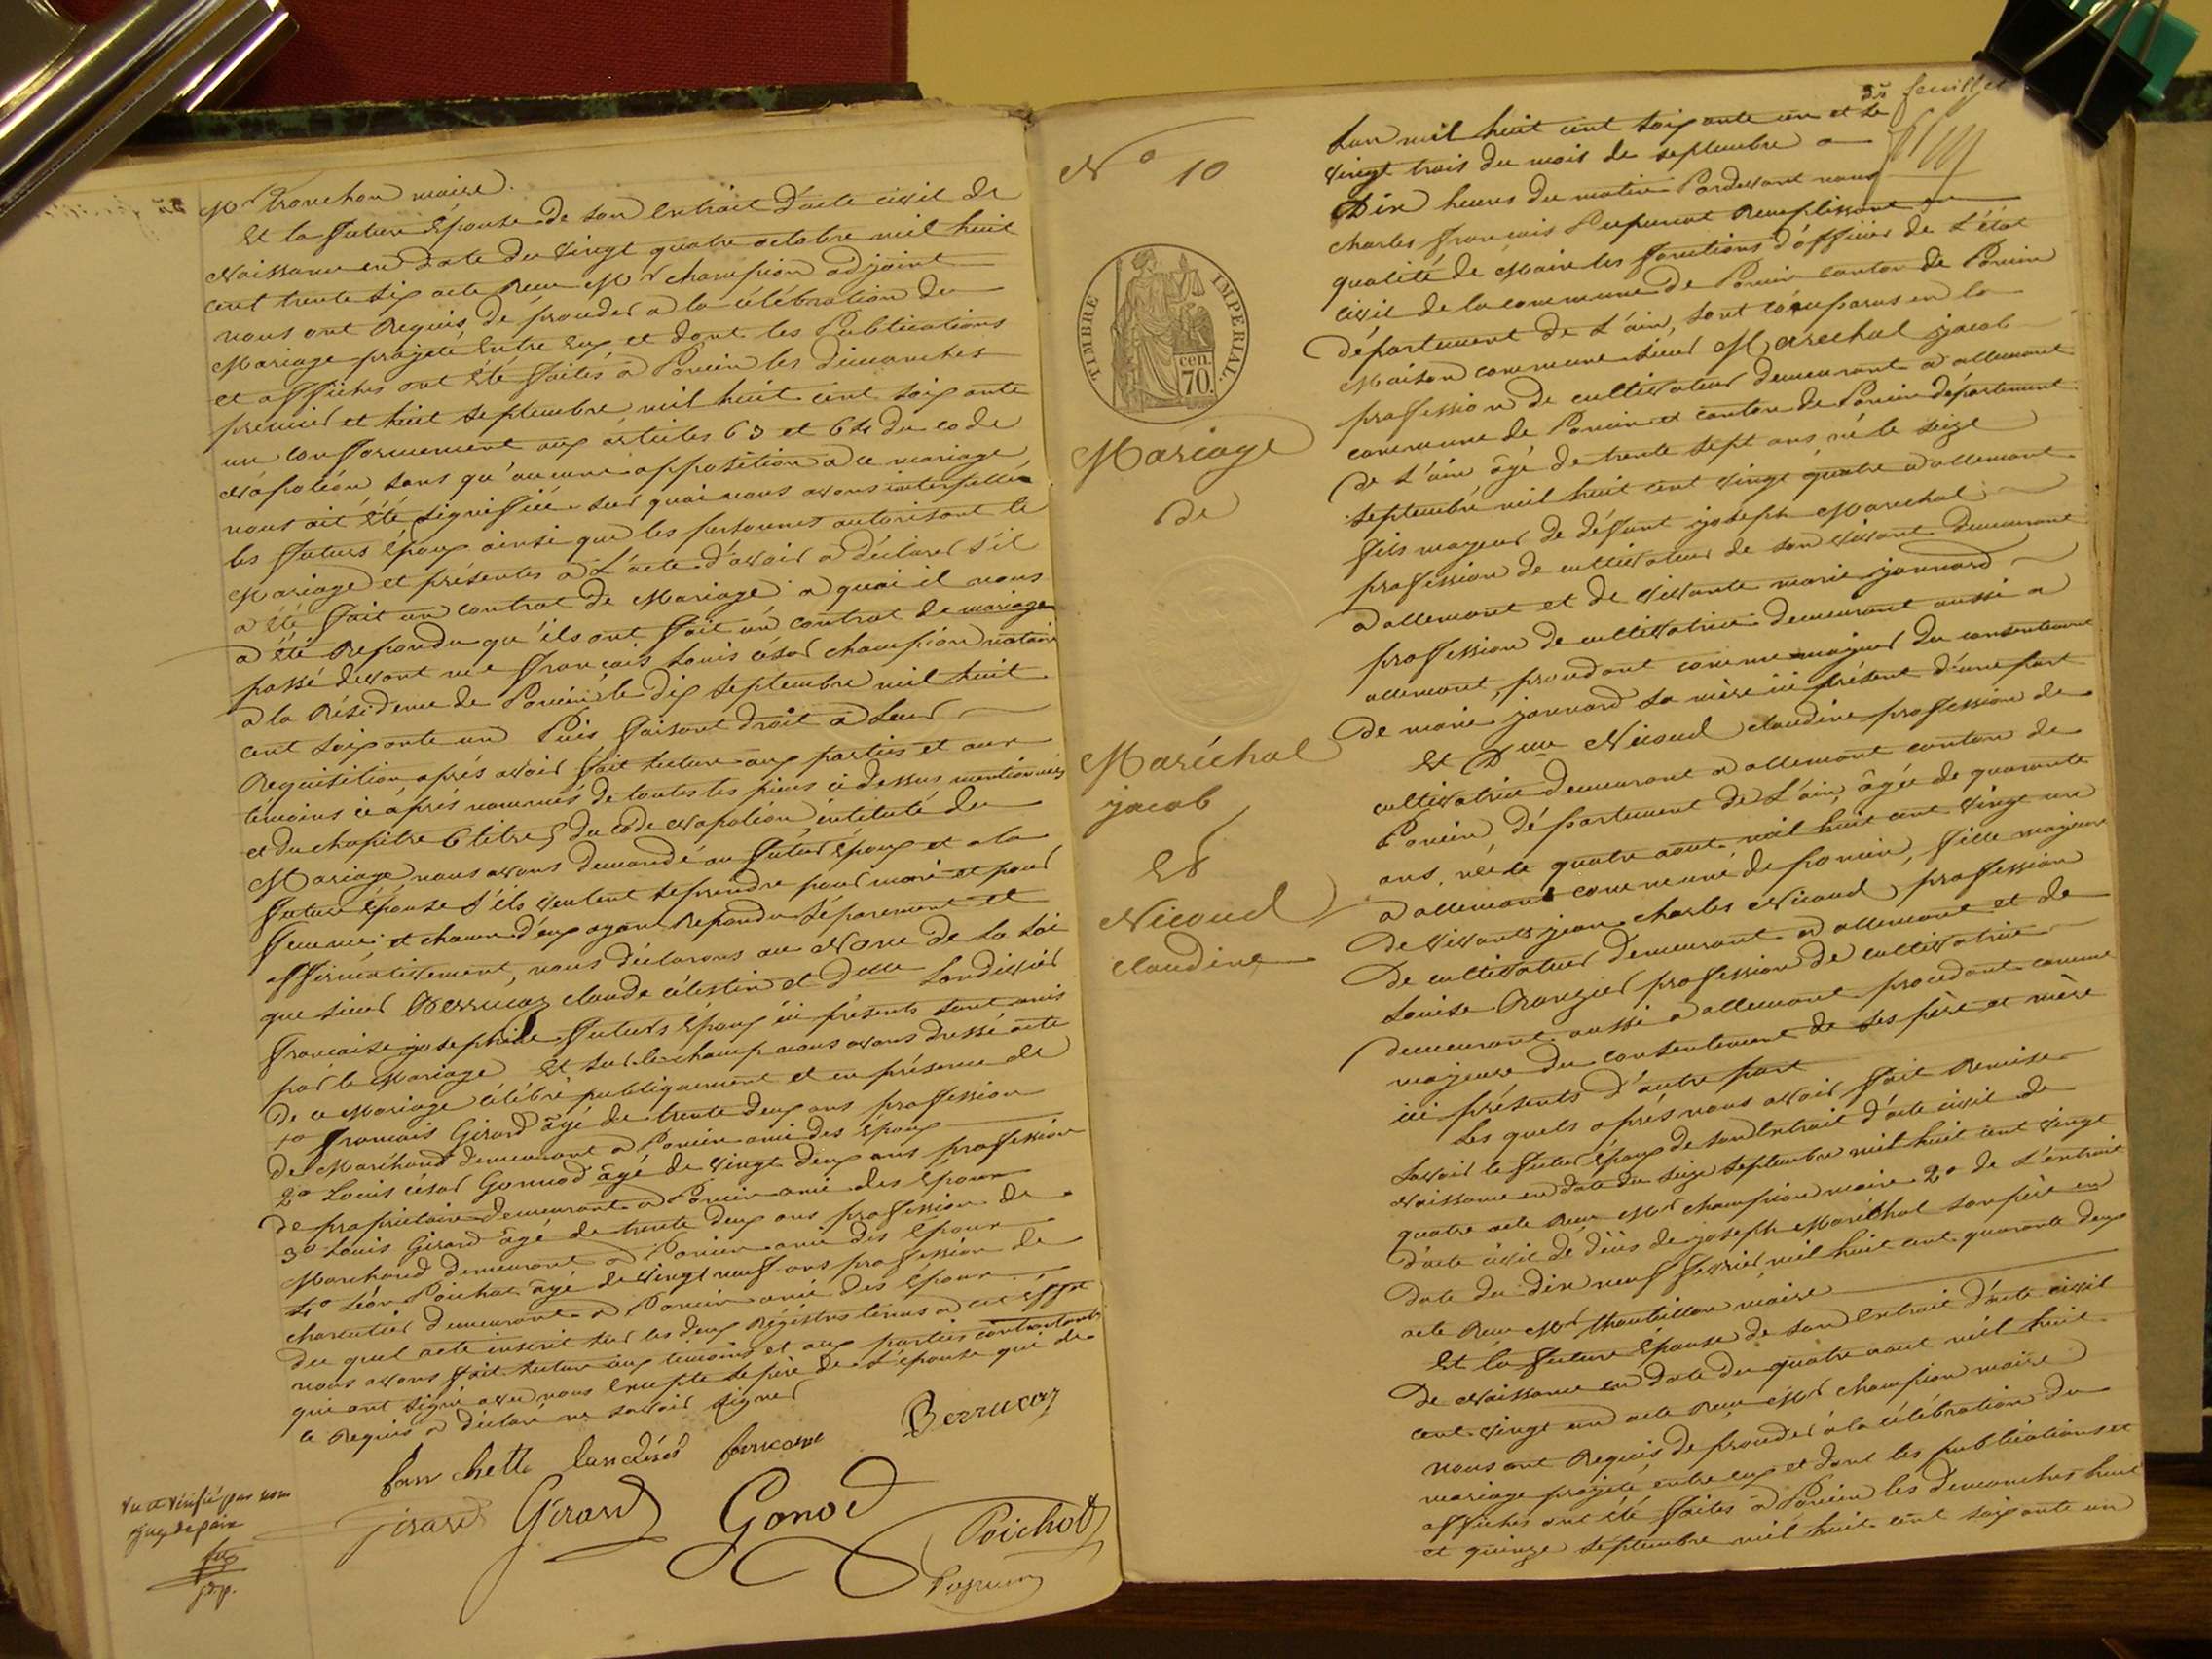 Mr Tronchon maire.
Et la future Épouse de son Extrait d'acte civil de
Naissance en date du vingt quatre octobre mil huit
cent trente six acte Reçu Mr champion adjoint
nous ont Requis de procéder a la célébration du
Mariage projeté Entre Eux et dont les Publications
et affiches ont été faites a Poncin les dimanches
premier et huit septembre mil huit cent soixante
un conformement aux articles 63 et 64 du code
Napoléon sans qu'aucune opposition a ce mariage
nous ait été signifiée. sur quoi nous avons interpellé
les futurs époux ainsi que les personnes autorisant le
Mariage et présentes a L'acte d'avoir a déclarer s'il
a été fait un contrat de Mariage a quoi il nous
a été Repondu qu'ils ont fait un contrat de mariage
passé devant me françois Louis césar champion notaire
a la Résidence de Poncin le dix septembre mil huit
cent soixante un Puis faisant droit a Leur
Requisition aprés avoir fait lecture aux parties et aux
témoins ci aprés nommés de toutes les pieces ci dessus mentionnées
et du chapitre 6 titre 5 du Code Napoléon intitulé du
Mariage nous avons demandé au futur Époux et a la
future Épouse s'ils veulent se prendre pour mari et pour
femme; et chacun d'eux ayant Repondu séparement et
affirmativement, nous déclarons au Nom de la Loi
que sieur Berrucaz claude célestin et Delle Londivier
francoise josephine futurs Epoux ici présents sont unis
par le Mariage Et sur le champ nous avons dressé acte
de ce Mariage célébré publiquement et en présence de
1o francois Girard âgé de trente deux ans profession
de Marchand demeurant a Poncin ami des époux
2o Louis césar Gonnod âgé de vingt deux ans profession
de proprietaire demeurant a Poncin ami des Époux
3o Louis Girard âgé de trente deux ans profession de
Marchand demeurant a Poncin ami des Époux
4o Léon Poichot âgé de vingt neuf ans profession de
charcutier demeurant a Poncin ami des Époux
du quel acte inscrit sur les deux Régistres tenus a cet effet
nous avons fait lecture aux témoins et aux parties contractantes
qui ont signé avec nous Excepté le père de L'épouse qui de
ce Requis a déclaré ne savoir signer
Berrucaz
girard Girard Gonod
Poichot
vu et vérifié par nous
juge de paix
No 10
TIMBRE IMPERIAL
cen.
70.
Mariage
de
Maréchal
jacob
Et
Nicoud
claudine
feuillet
Lan mil huit cent soixante un et le
vingt trois du mois de septembre a
Dix heures du matin Pardevant nous
charles françois Pupunat Remplissant en
qualité de Maire les fonctions d'officier de L'état
civil de la commune de Poncin canton de Poncin
département de L'ain, sont comparus en la
Maison commune sieur Marechal jacob
profession de cultivateur demeurant a allement
commune de Poncin et canton de Poncin département
de L'ain, âgé de trente sept ans né le seize
septembre mil huit cent vingt quatre a allement
fils majeur de défunt joseph Marechal
profession de cultivateur de son vivant demeurant
a allement et de vivante marie jannard
profession de cultivatrice demeurant aussi a
allement, procédant comme majeur du consentement
de marie jannard sa mère ici présent d'une part
Et Delle Nicoud claudine profession de
cultivatrice demeurant a allement canton de
Poncin, département de L'ain, âgée de quarante
ans, née le quatre aout mil huit cent vingt un
a allement commune de poncin, fille majeure
de vivants jean charles Nicoud profession
de cultivateur demeurant a allement et de
Louise Rangier profession de cultivatrice
demeurant aussi a allement procédant comme
majeure du consentement de ses père et mère
ici présents d'autre part
Les quels aprés nous avoir fait Remise
Savoir le futur Epoux de son Extrait d'acte civil de
Naissance en date du seize septembre mil huit cent vingt
quatre acte Reçu Mr champion maire 2o de L'extrait
d'acte civil de décès de joseph Maréchal son père en
date du dix neuf fevrier mil huit cent quarante deux
acte Reçu Mr maire
Et la future Épouse de son Extrait d'acte civil
De Naissance en date du quatre aout mil huit
cent vingt un acte Reçu Mr champion maire
nous ont Requis de procéder a la célébration du
mariage projeté entre eux et dont les publications et
affiches ont été faites a Poncin les dimanches huit
et quinze septembre mil huit cent soixante un